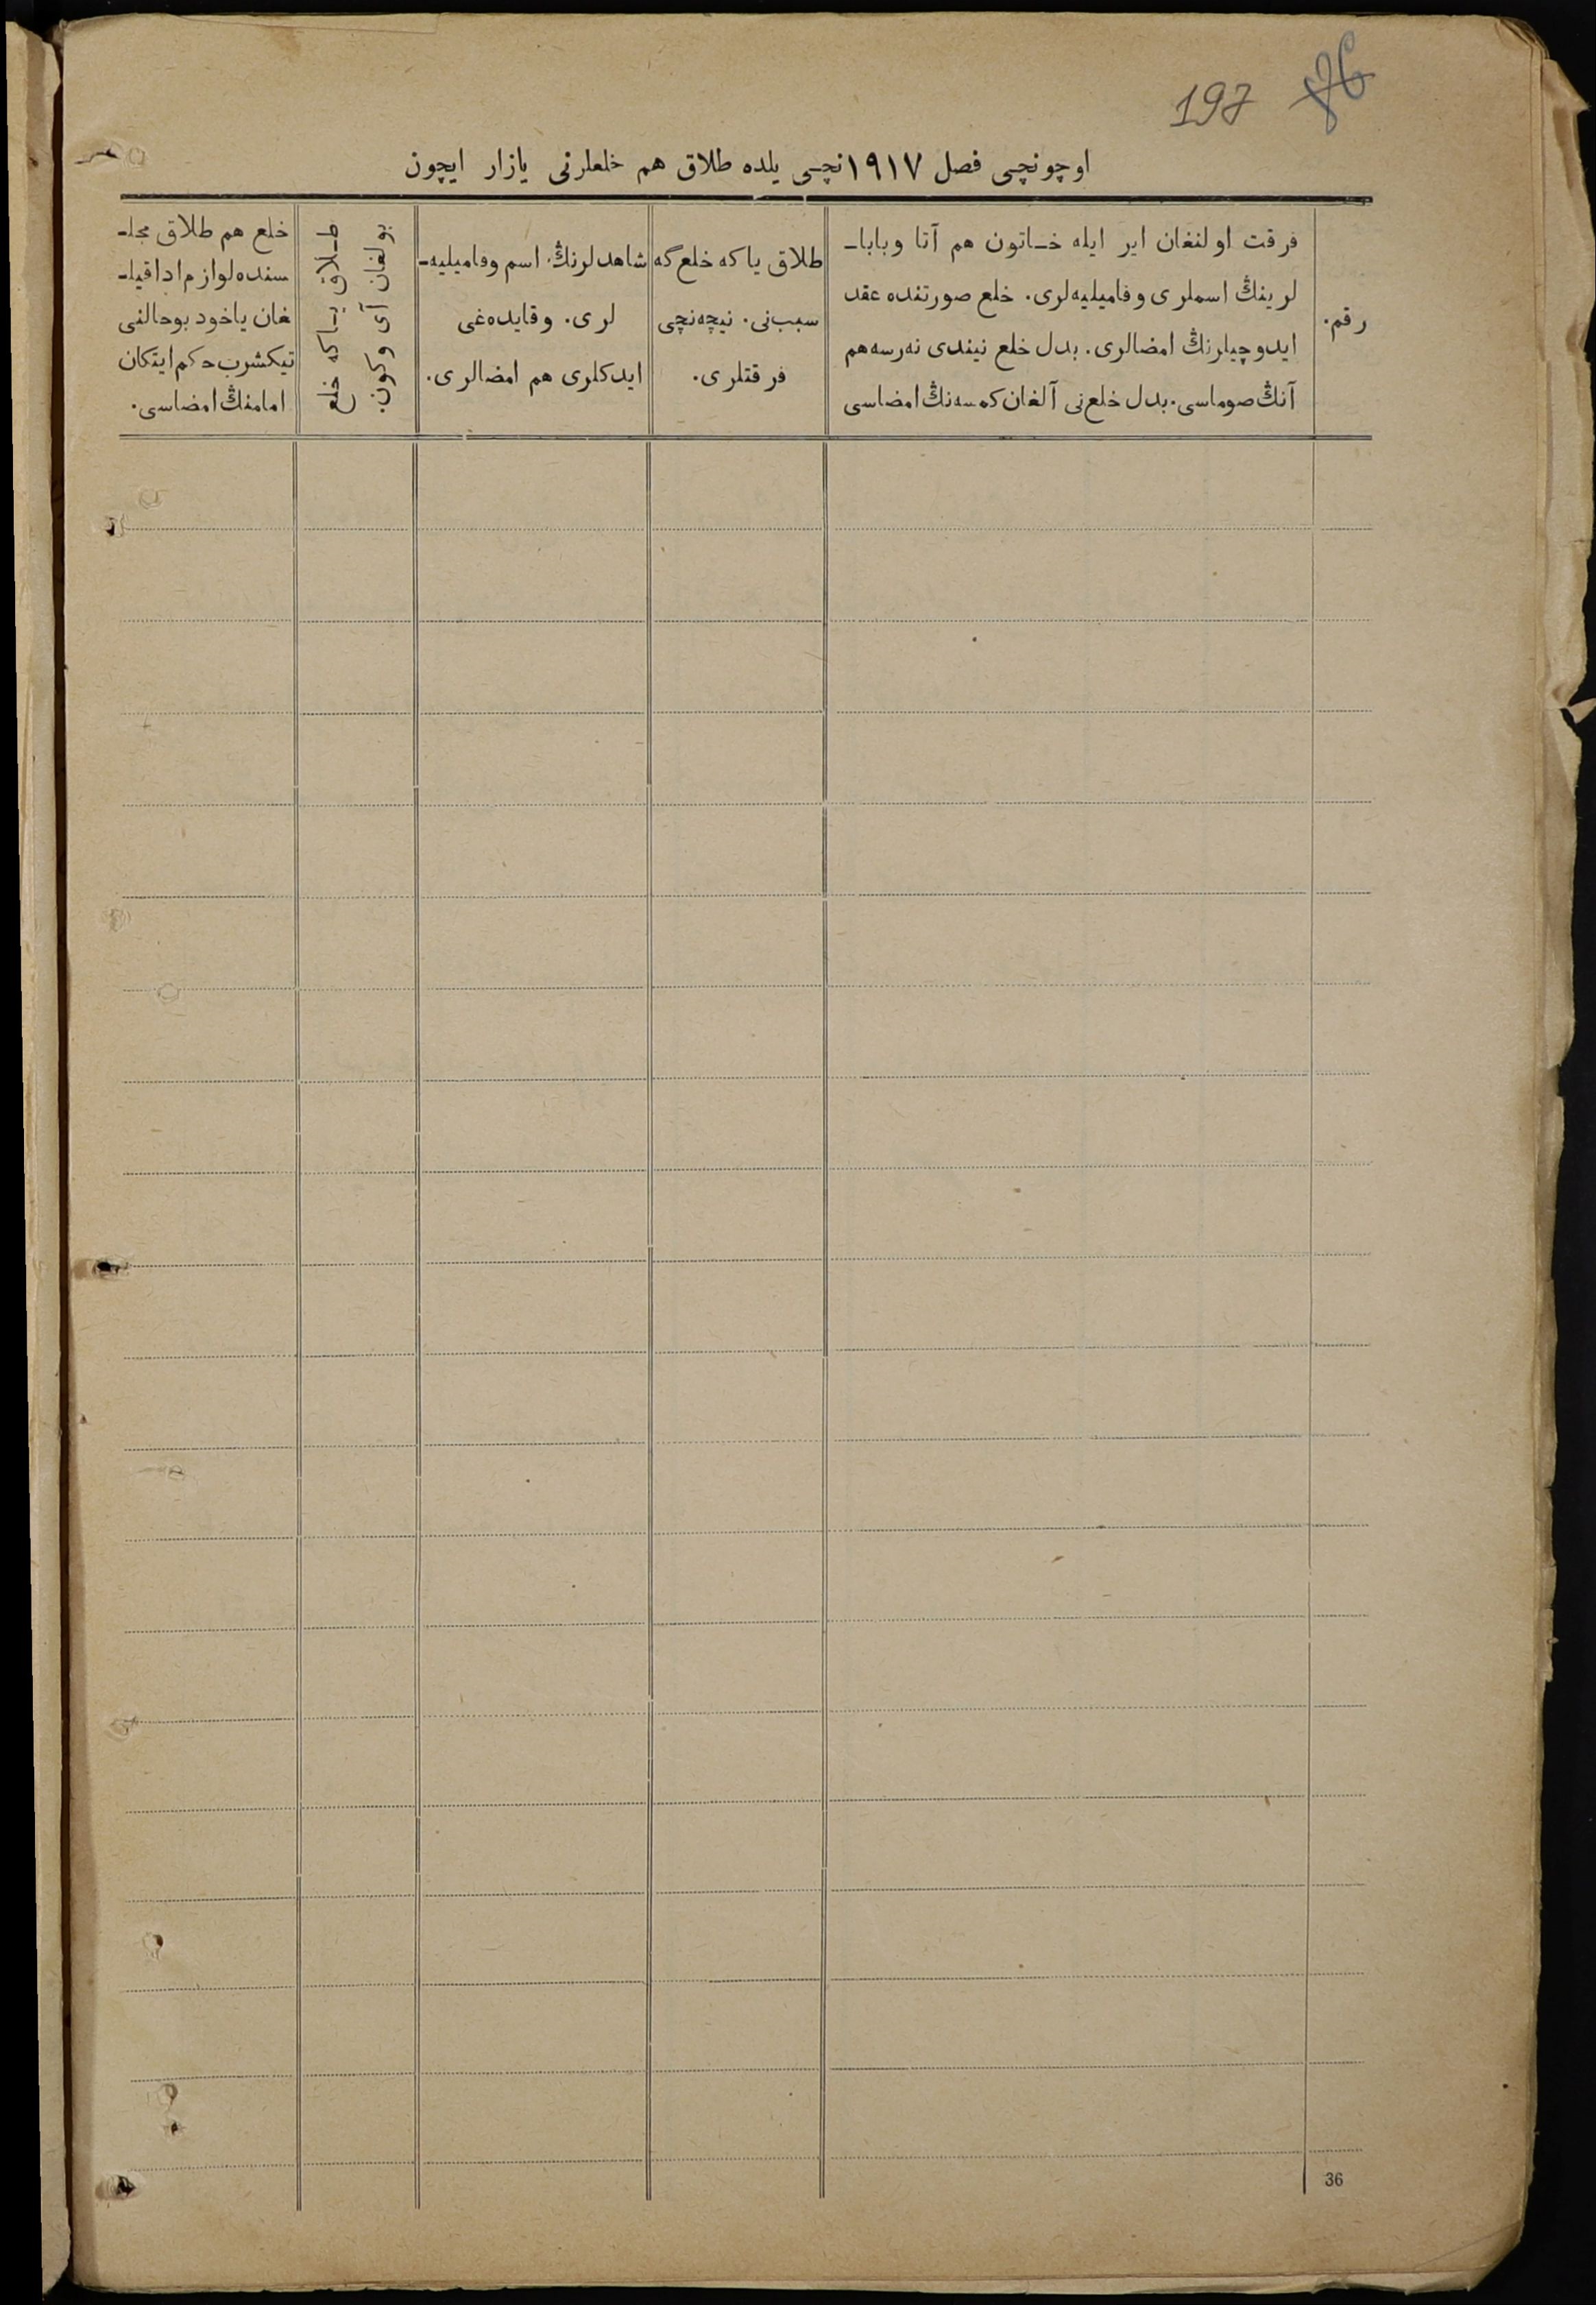 197 86
اوچونچی فصل ١٩١٧نچی یلده طلاق هم خلعلرنی یازار ایچون
رقم.
فرقت اولنغان ایر ایله خـاتون هم آتا وبابا-
لرینڭ اسملری وفامیلیه‌لری. خلع صورتنده عقد
ایدوچیلرنڭ امضالری. بدل خلع نیندی نه‌رسه‌هم
آنڭ صوماسی. بدل خلع‌نی آلغان کمسه‌نڭ امضاسی
طلاق یاکه خلع‌گه
سبب‌نی. نیچه‌نچی
فرقتلری.
شاهدلرنڭ اسم وفامیلیه-
لری. وقایده‌غی
ایدکلری هم امضالری.
طـلاق یـاکه خلع
بولغان آی وکون.
خلع هم طلاق مجلـ
سنده‌لوازم‌اداقیلـ
غان یاخود بوحالنی
تیکشرب حکم‌ایتکان
امامنڭ امضاسی.
36